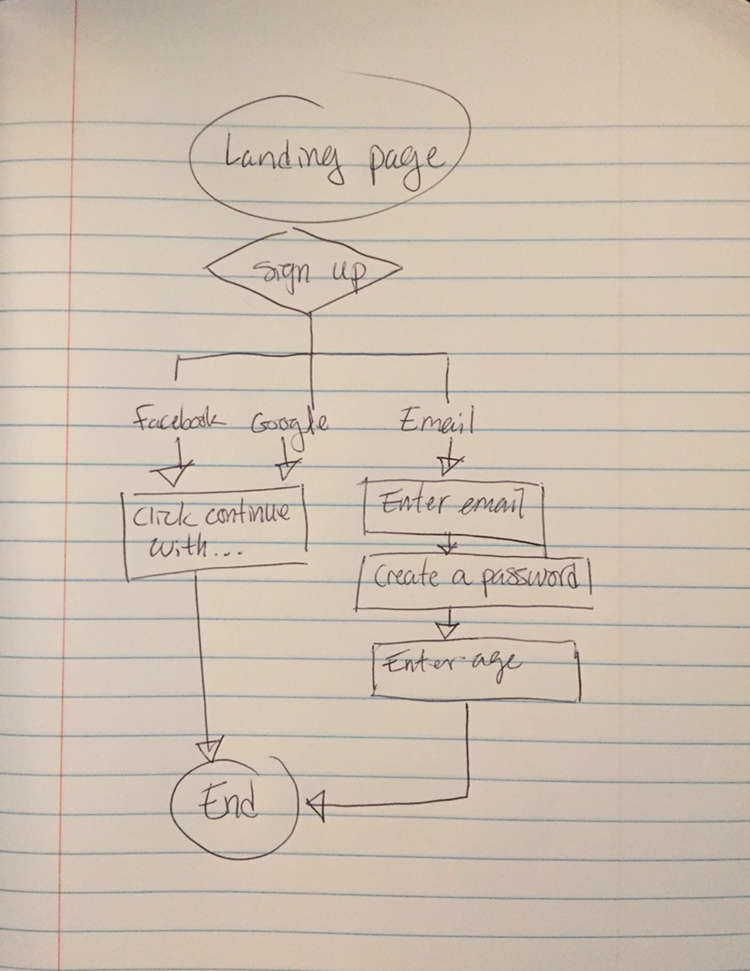 Landing page
Sign up
Facebook Google Email
Click continue
with...
Enter email
Create a password
Enter age
End